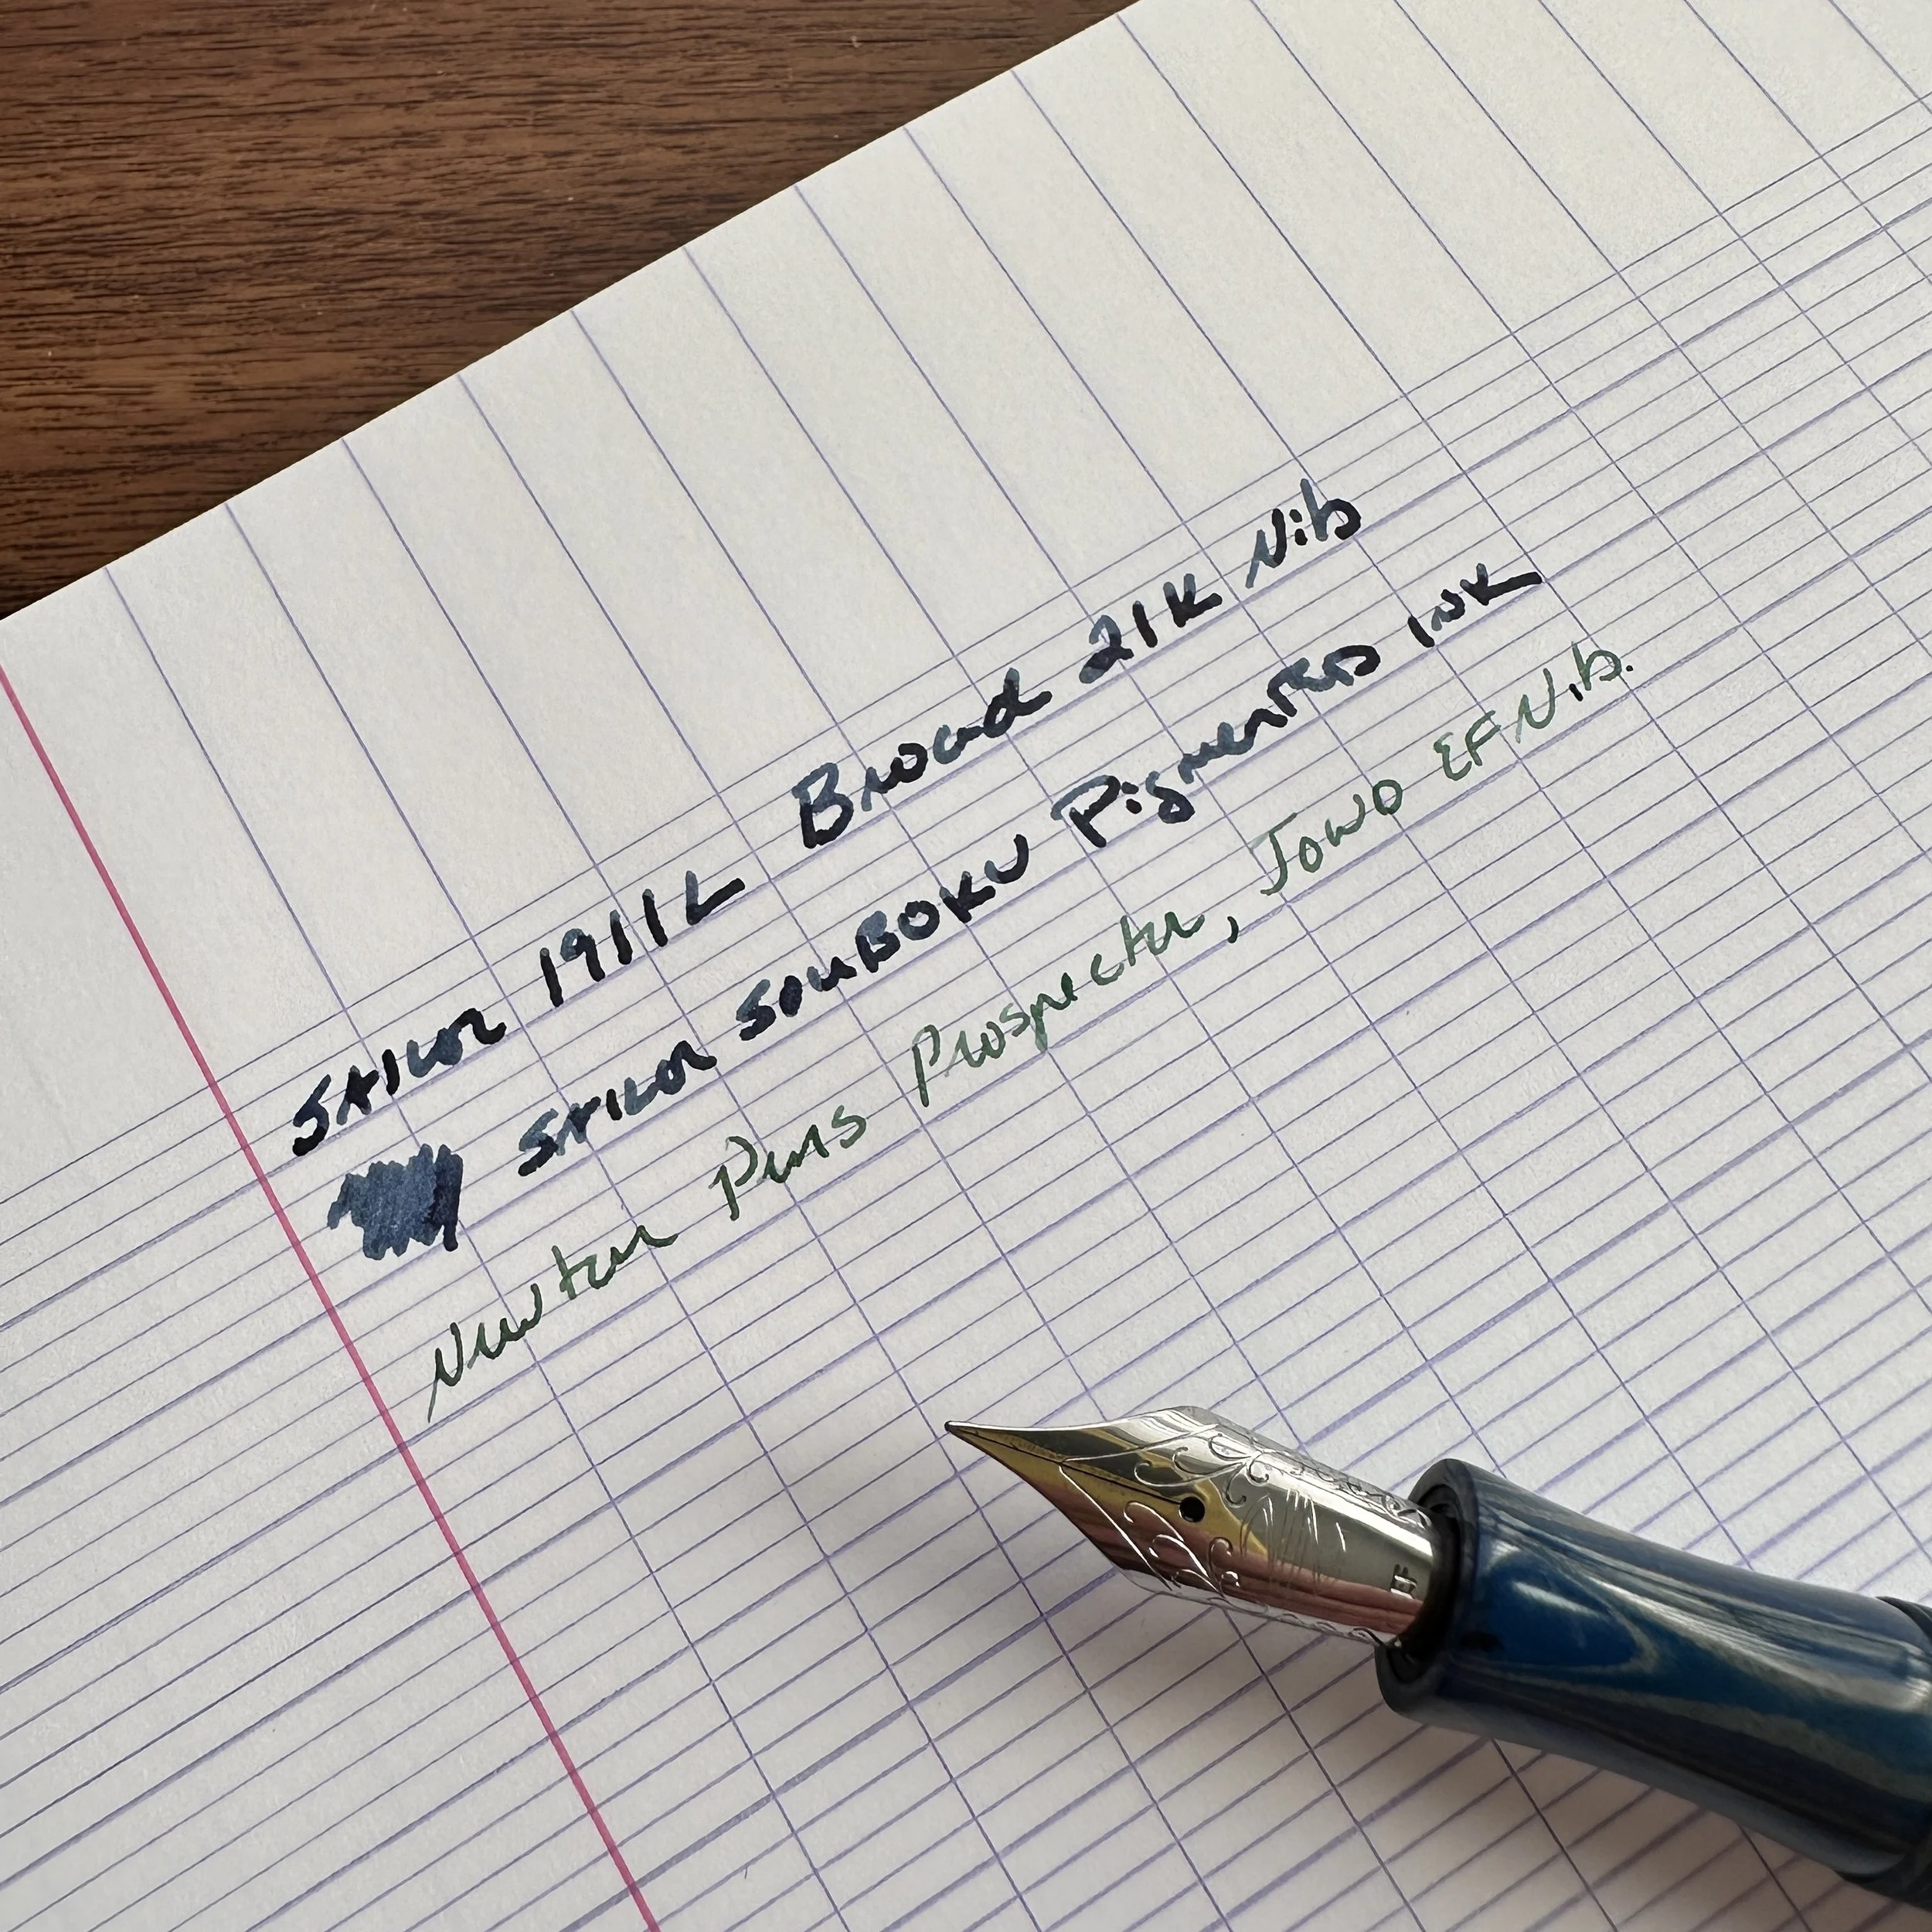 SAILOR 1911L Broad 21K Nib
SAILOR SOUBOKU Pigmented INK
Newton Pens Prospector, Jowo EF Nib.